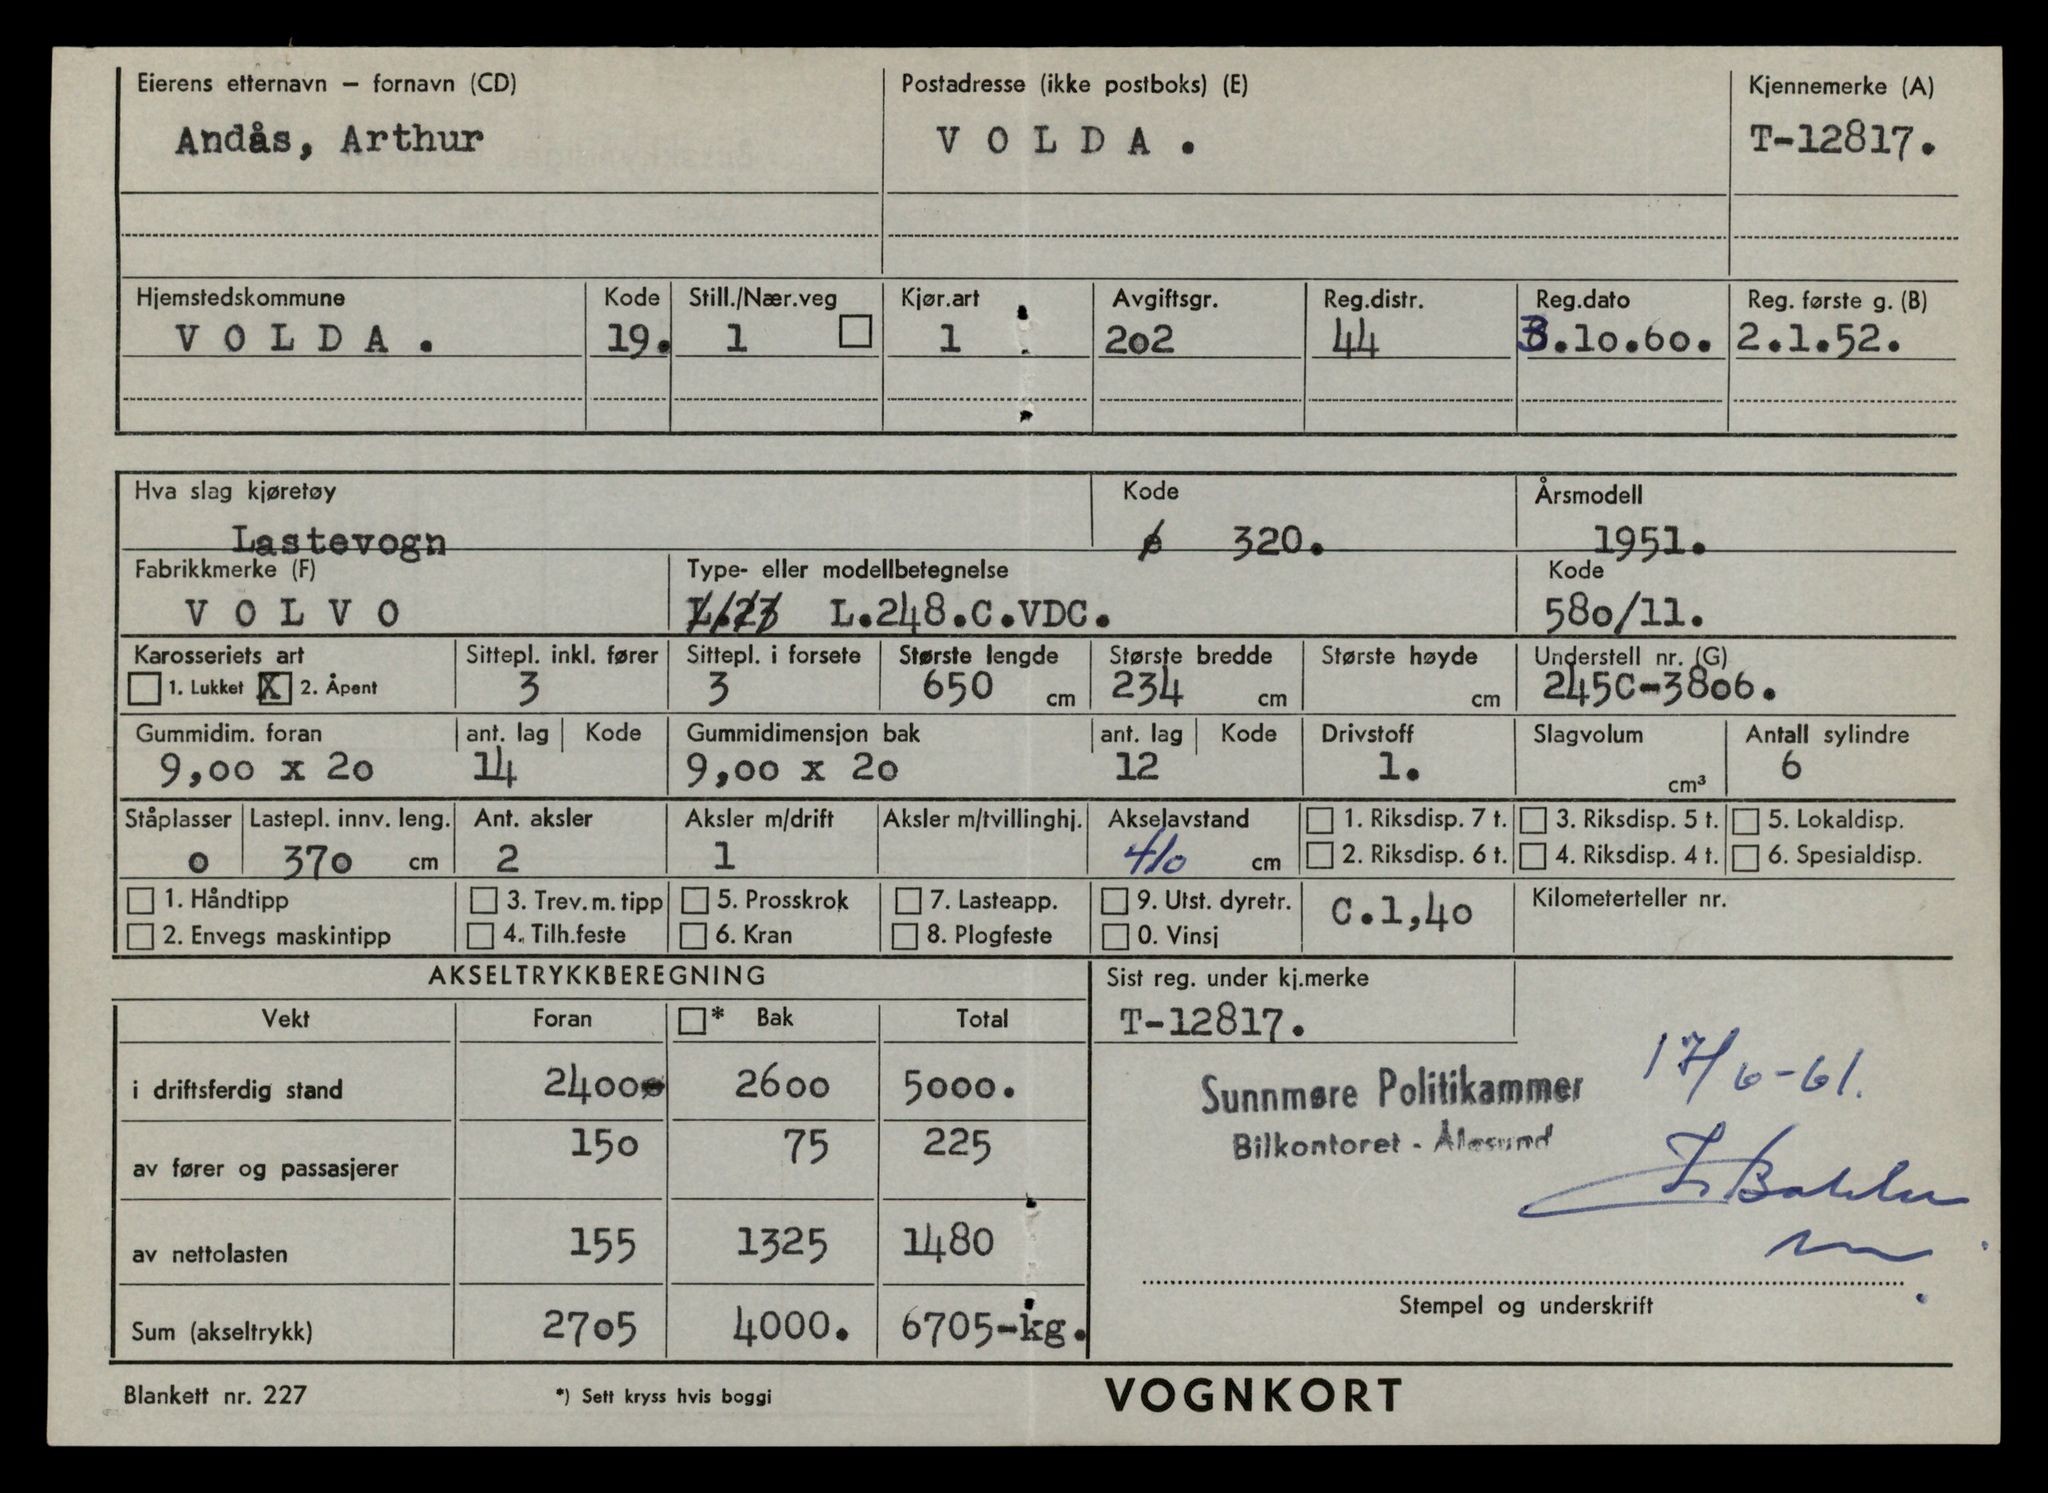 Eierens etternavn – fornavn (CD) Postadresse (ikke postboks) (E) Kjennemerke (A)
Andås, Arthur V O L D A . T-12817.
Hjemstedskommune Kode Still./Nær.veg Kjør.art Avgiftsgr. Reg.distr. Reg.dato Reg. første g. (B)
V O L D A . 19. 1 1 202 44 3.10.60. 2.1.52.
Hva slag kjøretøy Kode Årsmodell
Lastevogn 320. 1951.
Fabrikkmerke (F) Type- eller modellbetegnelse Kode
V O L V O L.23 L.248.C.VDC. 580/11.
Karosseriets art Sittepl. inkl. fører Sittepl. i forsete Største lengde Største bredde Største høyde Understell nr. (G)
1. Lukket X 2. Åpent 3 3 650 cm 234 cm cm 245C-3806.
Gummidim. foran ant. lag Kode Gummidimensjon bak ant. lag Kode Drivstoff Slagvolum Antall sylindre
9,00 x 20 14 9,00 x 20 12 1. cm³ 6
Ståplasser Lastepl. innv. leng. Ant. aksler Aksler m/drift Aksler m/tvillinghj. Akselavstand 1. Riksdisp. 7 t. 3. Riksdisp. 5 t. 5. Lokaldisp.
0 370 cm 2 1 410 cm 2. Riksdisp. 6 t. 4. Riksdisp. 4 t. 6. Spesialdisp.
1. Håndtipp 3. Trev. m. tipp 5. Prosskrok 7. Lasteapp. 9. Utst. dyretr. C.1,40 Kilometerteller nr.
2. Envegs maskintipp 4. Tilh.feste 6. Kran 8. Plogfeste 0. Vinsj
AKSELTRYKKBEREGNING Sist reg. under kj.merke
Vekt Foran * Bak Total T-12817.
i driftsferdig stand 2400 2600 5000.
Sunnmøre Politikammer 17/6-61.
Bilkontoret - Ålesund
av fører og passasjerer 150 75 225
av nettolasten 155 1325 1480
Stempel og underskrift
Sum (akseltrykk) 2705 4000. 6705-kg.
Blankett nr. 227 *) Sett kryss hvis boggi VOGNKORT